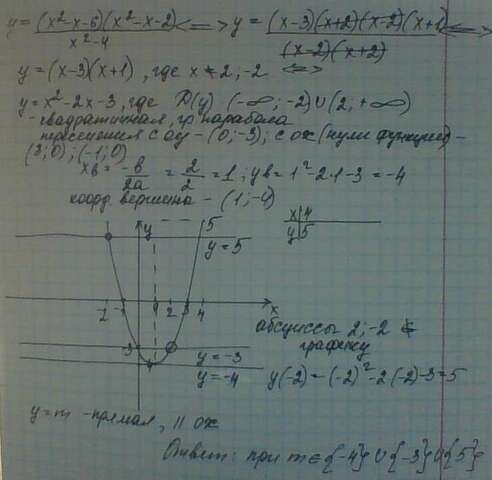 y = (x²-x-6)(x²-x-2) / x²-4 <=> y = (x-3)(x+2)(x-2)(x+1) / (x-2)(x+2) <=>
y = (x-3)(x+1), где x ≠ 2; -2 <=>
y = x² - 2x - 3, где D(y) (-∞; -2) ∪ (2; +∞)
- квадратичная, гр парабола
пересечения с oy - (0; -3); с ox (нули функции) -
(3; 0); (-1; 0)
xв = -b/2a = 2/2 = 1; yв = 1² - 2·1 - 3 = -4
коорд. вершина - (1; -4)
x 4
y 5
y 5
y = 5
-2 -1 1 2 3 4 x
абсциссы 2; -2 ∉
графику
-3
y = -3
y = -4
y(-2) = (-2)² - 2(-2) - 3 = 5
y = m - прямая, || ox
Ответ: при m ∈ {-4} ∪ {-3} ∪ {5}